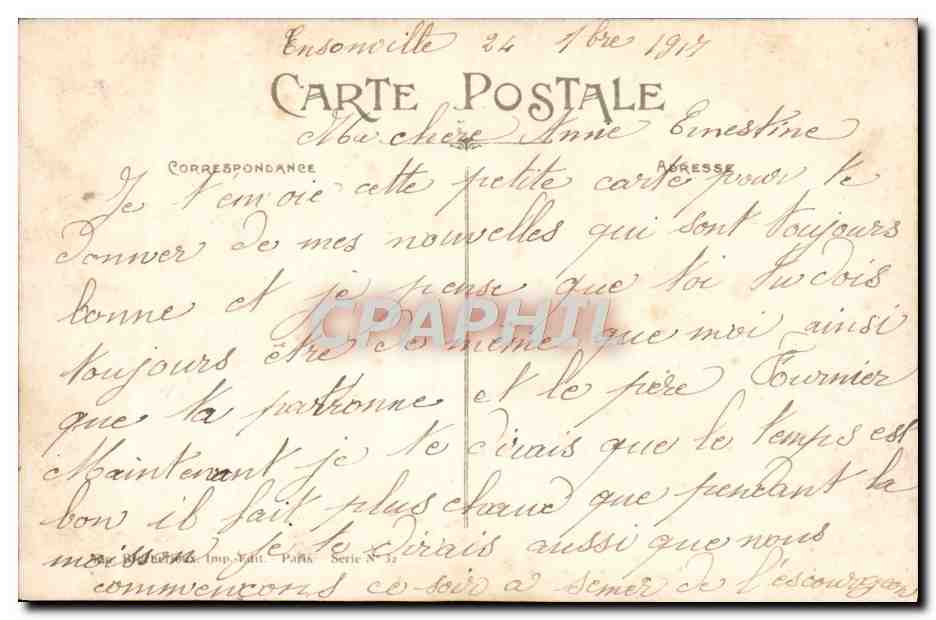 Ensonville 24 7bre 1917
CARTE POSTALE
Ma chère Annie Ernestine
CORRESPONDANCE ADRESSE
Je t'envoie cette petite carte pour te
donner de mes nouvelles qui sont toujours
bonne et je pense que toi tu dois
CPAPHIL
toujours être de même que moi ainsi
que ta patronne et le père Fournier
Maintenant je te dirais que le temps est
bon il fait plus chaud que pendant la
moisson je te dirais aussi que nous
Imp.-Edit. Paris. Serie N° 32
commençons ce soir a semer de l'escourgeon